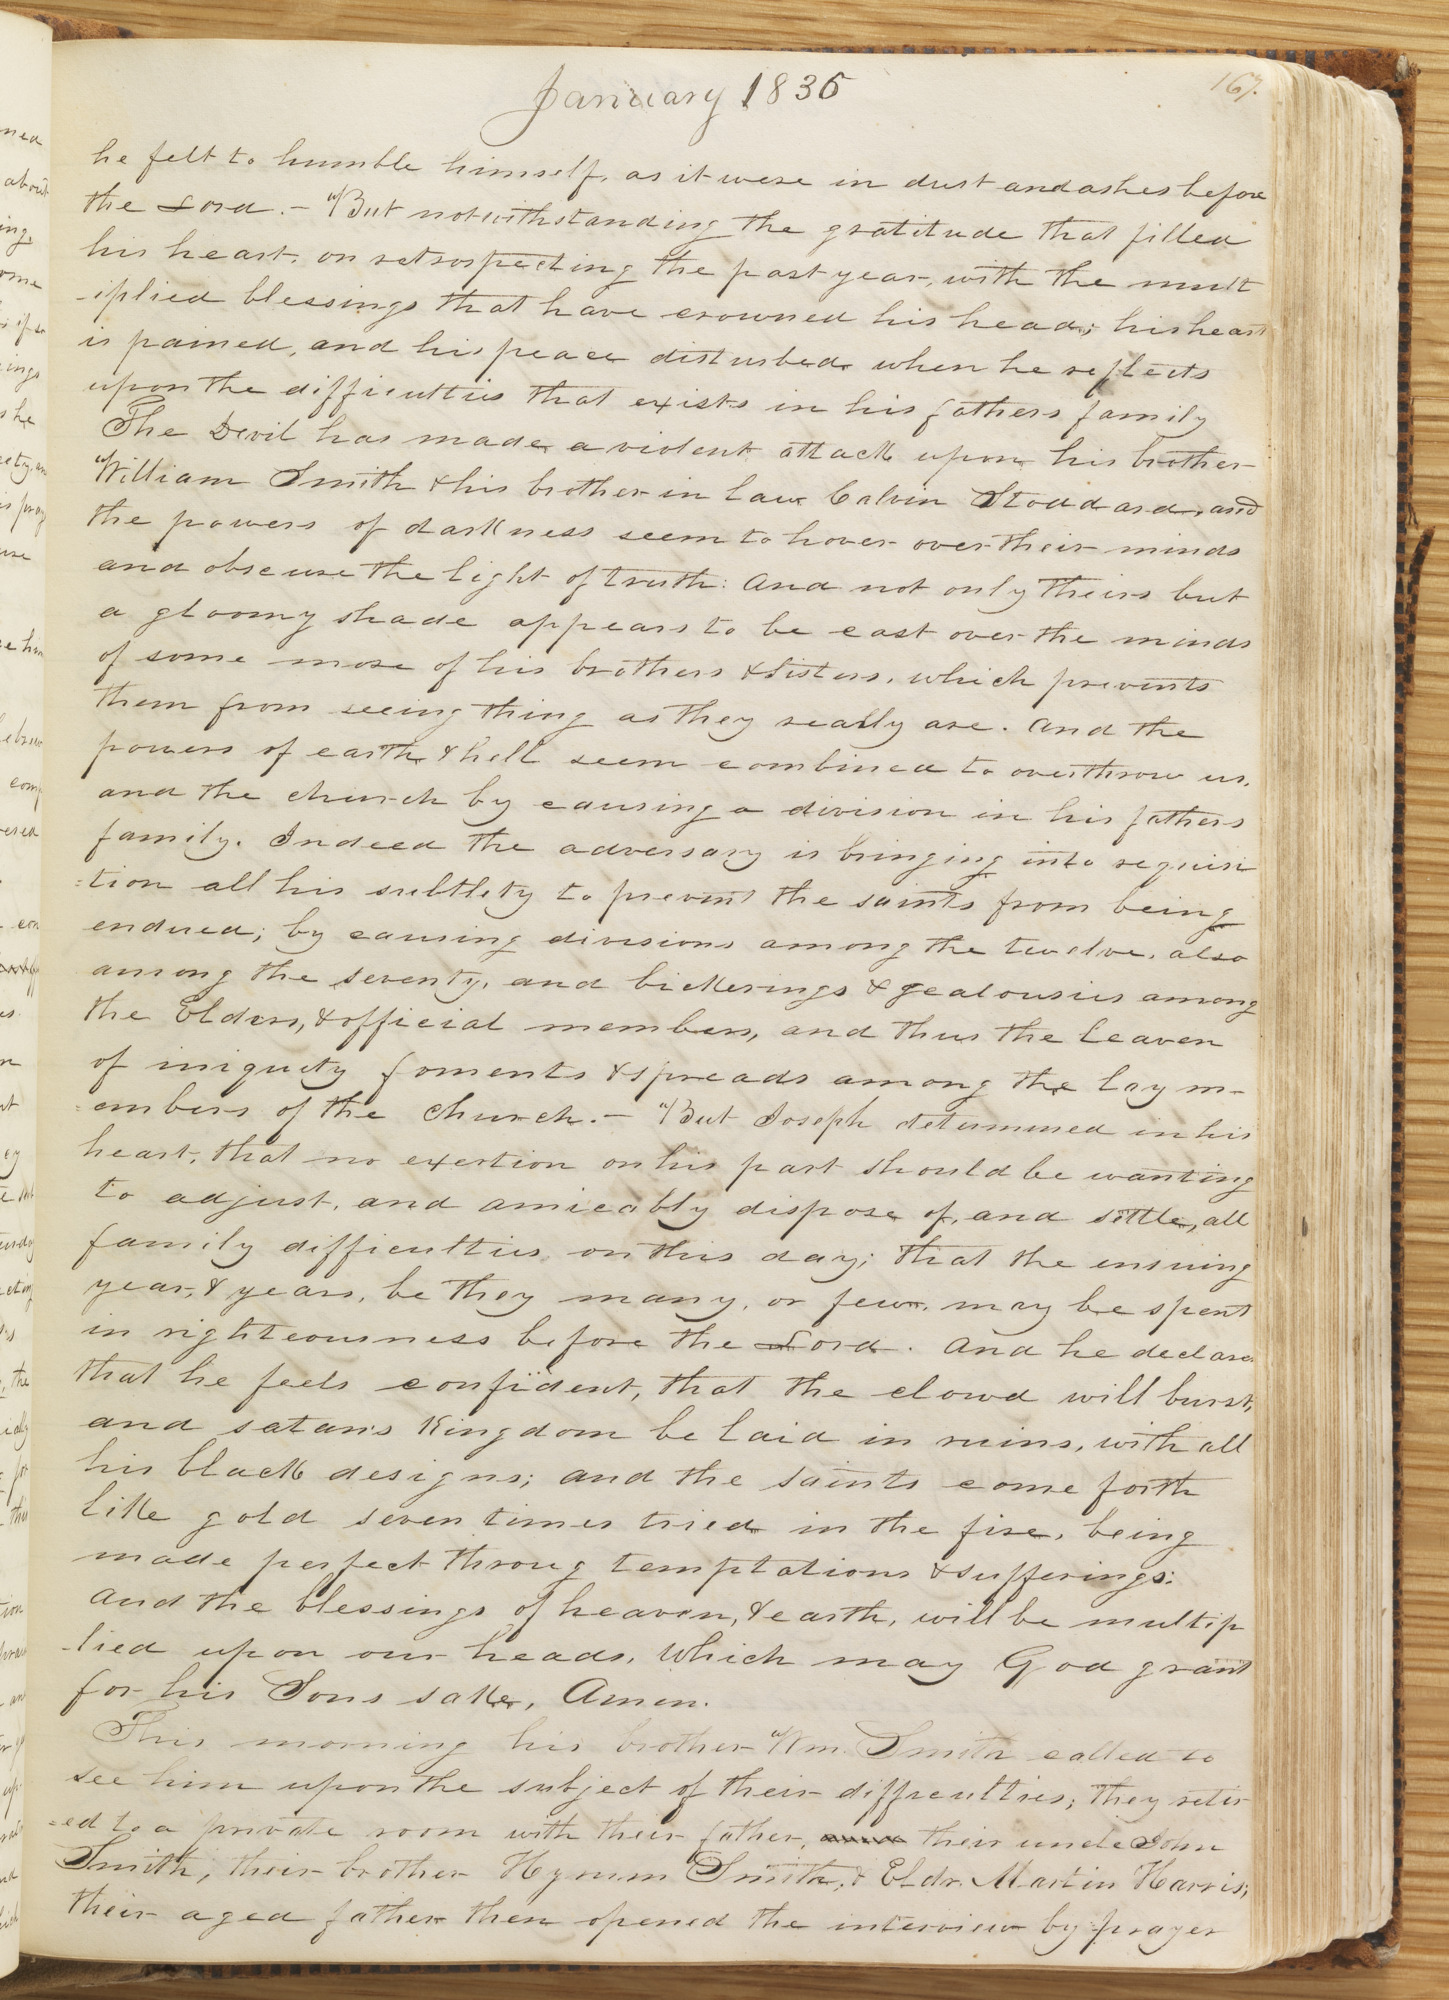 January 1836
167.
he felt to humble himself, as it were in dust and ashes before
the Lord.— But notwithstanding the gratitude that filled
his heart, on retrospecting the past year, with the mult
-iplied blessings that have crowned his head; his heart
is pained, and his peace disturbed when he reflects
upon the difficulties that exists in his fathers family
The Devil has made a violent attack upon his brother
William Smith & his brother in law Calvin Stoddard, and
the powers of darkness seem to hover over their minds
and obscure the light of truth: And not only theirs but
a gloomy shade appears to be cast over the minds
of some more of his brothers & sisters, which prevents
them from seeing thing as they really are. And the
powers of earth & hell seem combined to overthrow us,
and the church by causing a division in his fathers
family. Indeed the adversary is bringing into requisi
=tion all his subtlety to prevent the saints from being
endued; by causing divisions among the twelve, also
among the seventy, and bickerings & jealousies among
the Elders, & official members, and thus the leaven
of iniquity foments & spreads among the lay m-
=embers of the church.— But Joseph determined in his
heart, that no exertion on his part should be wanting
to adjust, and amicably dispose of, and settle, all
family difficulties on this day; that the ensuing
year, & years, be they many, or few, may be spent
in righteousness before the Lord. And he declares
that he feels confident, that the clowd will burst,
and satan's Kingdom be laid in ruins, with all
his black designs; and the saints come forth
like gold seven times tried in the fire, being
made perfect throug temptations & sufferings;
And the blessings of heaven, & earth, will be multip
-lied upon our heads, which may God grant
for his Sons sake, Amen.
This morning his brother Wm. Smith called to
see him upon the subject of their difficulties; they retir
=ed to a private room with their father, their uncle John
Smith, their brother Hyrum Smith, & Eldr. Martin Harris;
their aged father then opened the interview by prayer